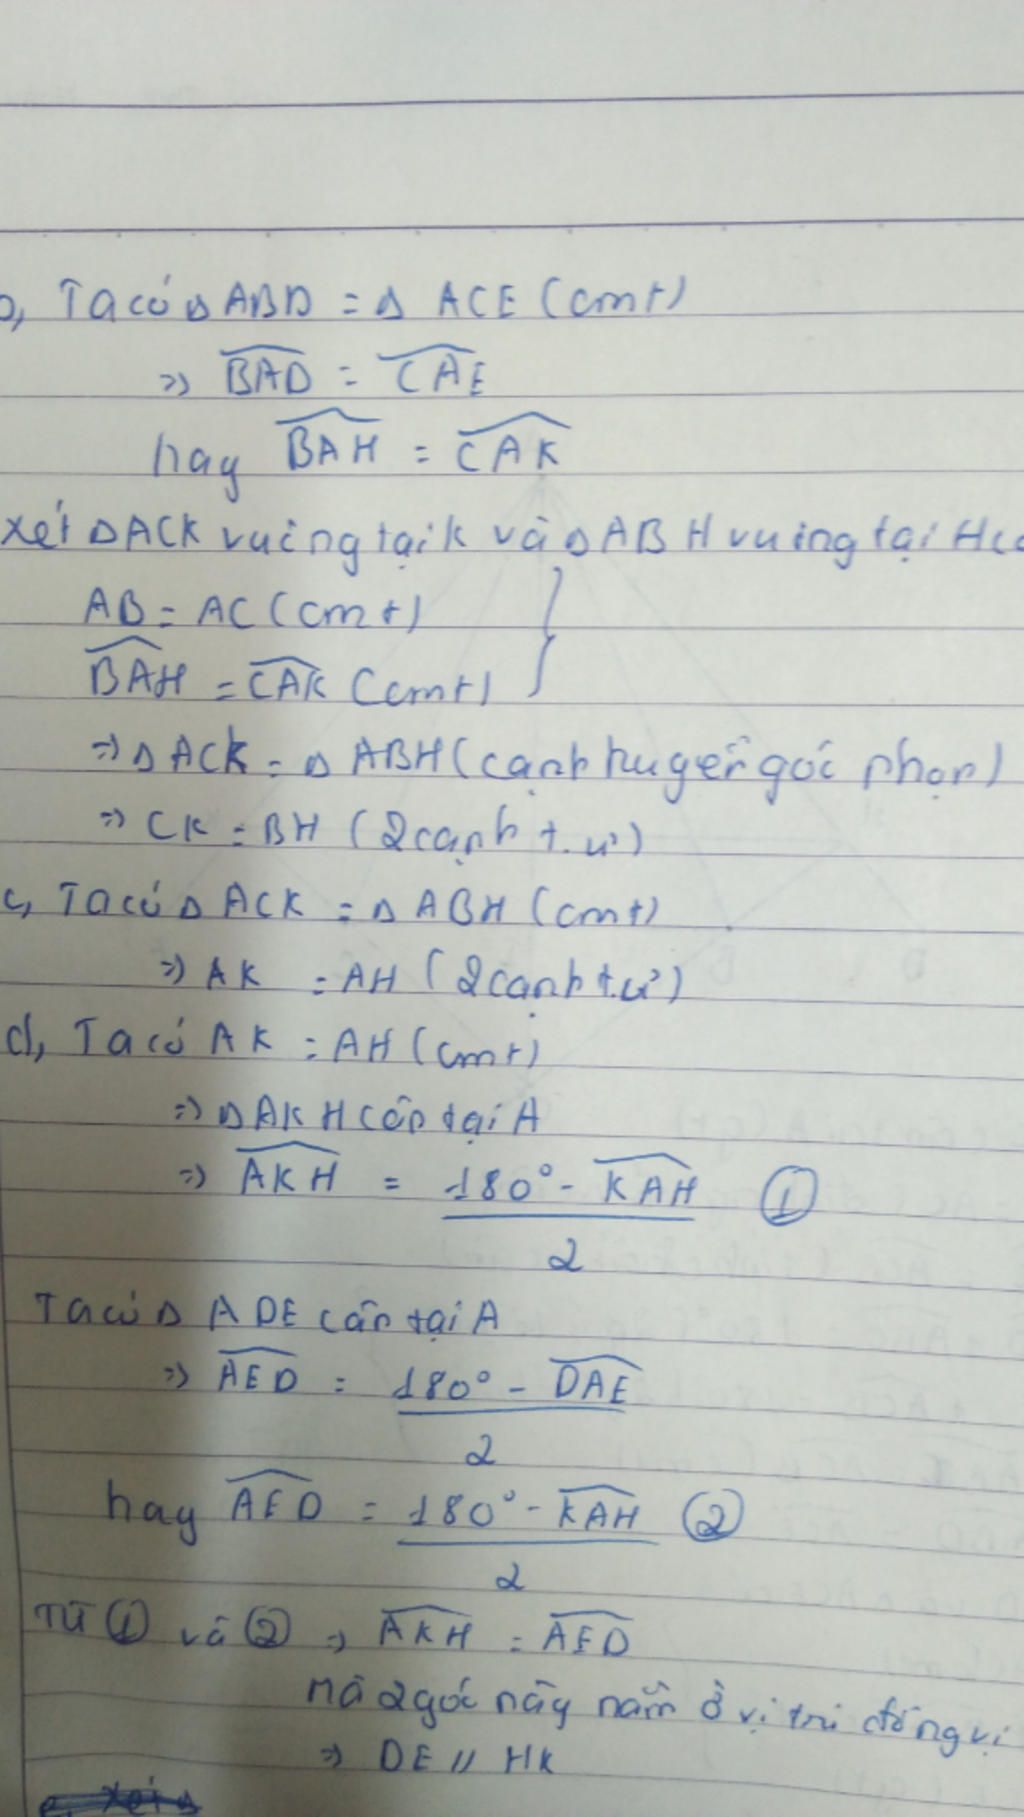 b, Ta có Δ ABD = Δ ACE (cmt)
=> BAD = CAE
hay BAH = CAK
Xét Δ ACK vuông tại K và Δ ABH vuông tại H có
AB = AC (cmt)
BAH = CAK (cmt)
=> Δ ACK = Δ ABH (cạnh huyền góc nhọn)
=> CK = BH (2 cạnh t.ư)
c, Ta có Δ ACK = Δ ABH (cmt)
=> AK = AH (2 cạnh t.ư)
d, Ta có AK = AH (cmt)
=> Δ AKH cân tại A
=> AKH = 180° - KAH ①
2
Ta có Δ ADE cân tại A
=> AED = 180° - DAE
2
hay AED = 180° - KAH ②
2
Từ ① và ② => AKH = AED
mà 2 góc này nằm ở vị trí đồng vị
=> DE // HK